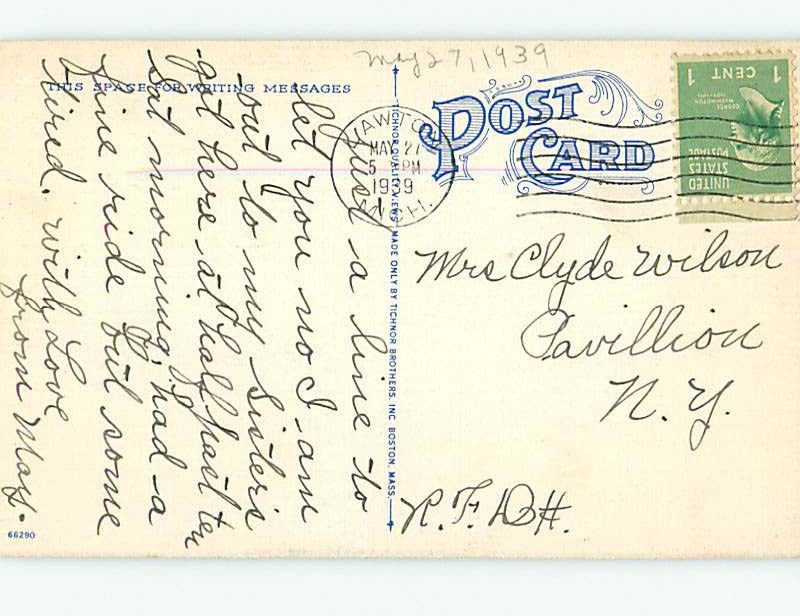 May 27, 1939
THIS SPACE FOR WRITING MESSAGES
POST CARD
LAWTON
MAY 27
5 PM
1939
MICH.
1 CENT 1
GEORGE WASHINGTON
UNITED
STATES
POSTAGE
Just a line to
let you no I am
out to my Sisters
got here at half past ten
Sat morning, had a
fine ride but some
tired. with Love
from May.
TICHNOR QUALITY VIEWS MADE ONLY BY TICHNOR BROTHERS, INC. BOSTON, MASS.
Mrs Clyde Wilson
Pavillion
N. Y.
R. F. D #.
66290